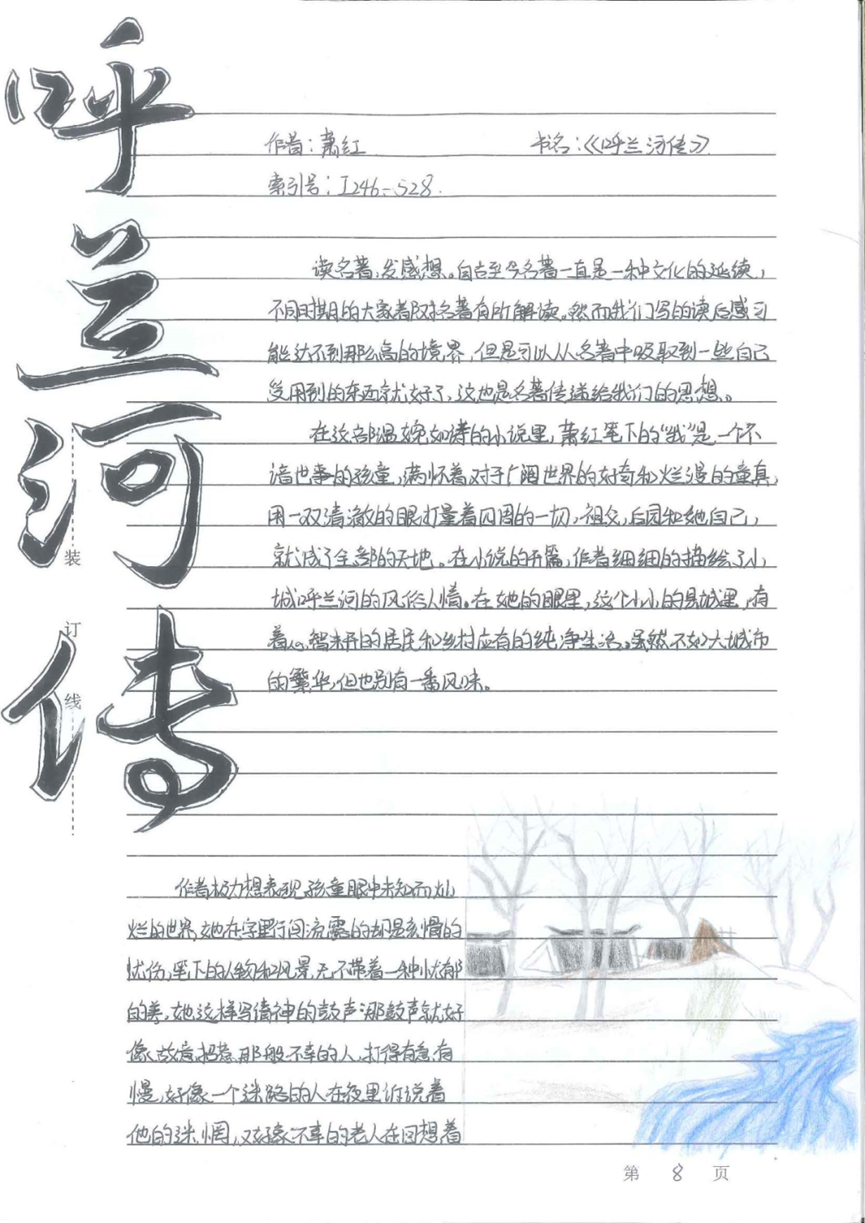 呼兰河传
作者：萧红 书名：《呼兰河传》
索引号：I246-528.
读名著，发感想。自古至今名著一直是一种文化的延续，
不同时期的大家都对名著有所解读。然而我们写的读后感可
能达不到那么高的境界，但是可以从名著中吸取到一些自己
受用到的东西就好了，这也是名著传递给我们的思想。
在这部温婉如诗的小说里，萧红笔下的“我”是一个不
谙世事的孩童，满怀着对于广阔世界的好奇和烂漫的童真，
用一双清澈的眼打量着四周的一切，祖父，后园和她自己，
就成了全部的天地。在小说的开篇，作者细细的描绘了小
城呼兰河的风俗人情。在她的眼里，这个小小的县城里，有
着心智未开的居民和乡村应有的纯净生活。虽然不如大城市
的繁华，但也别有一番风味。
作者极力想表现孩童眼中未知而灿
烂的世界，她在字里行间流露的却是哀惜的
忧伤，笔下的人物和风景，无不带着一种忧郁
的美，她这样写请神的鼓声：那鼓声就好
像故意招惹那般不幸的人，打得有急有
慢，好像一个迷路的人在夜里诉说着
他的迷惘，又好像不幸的老人在回想着
装
订
线
第 8 页